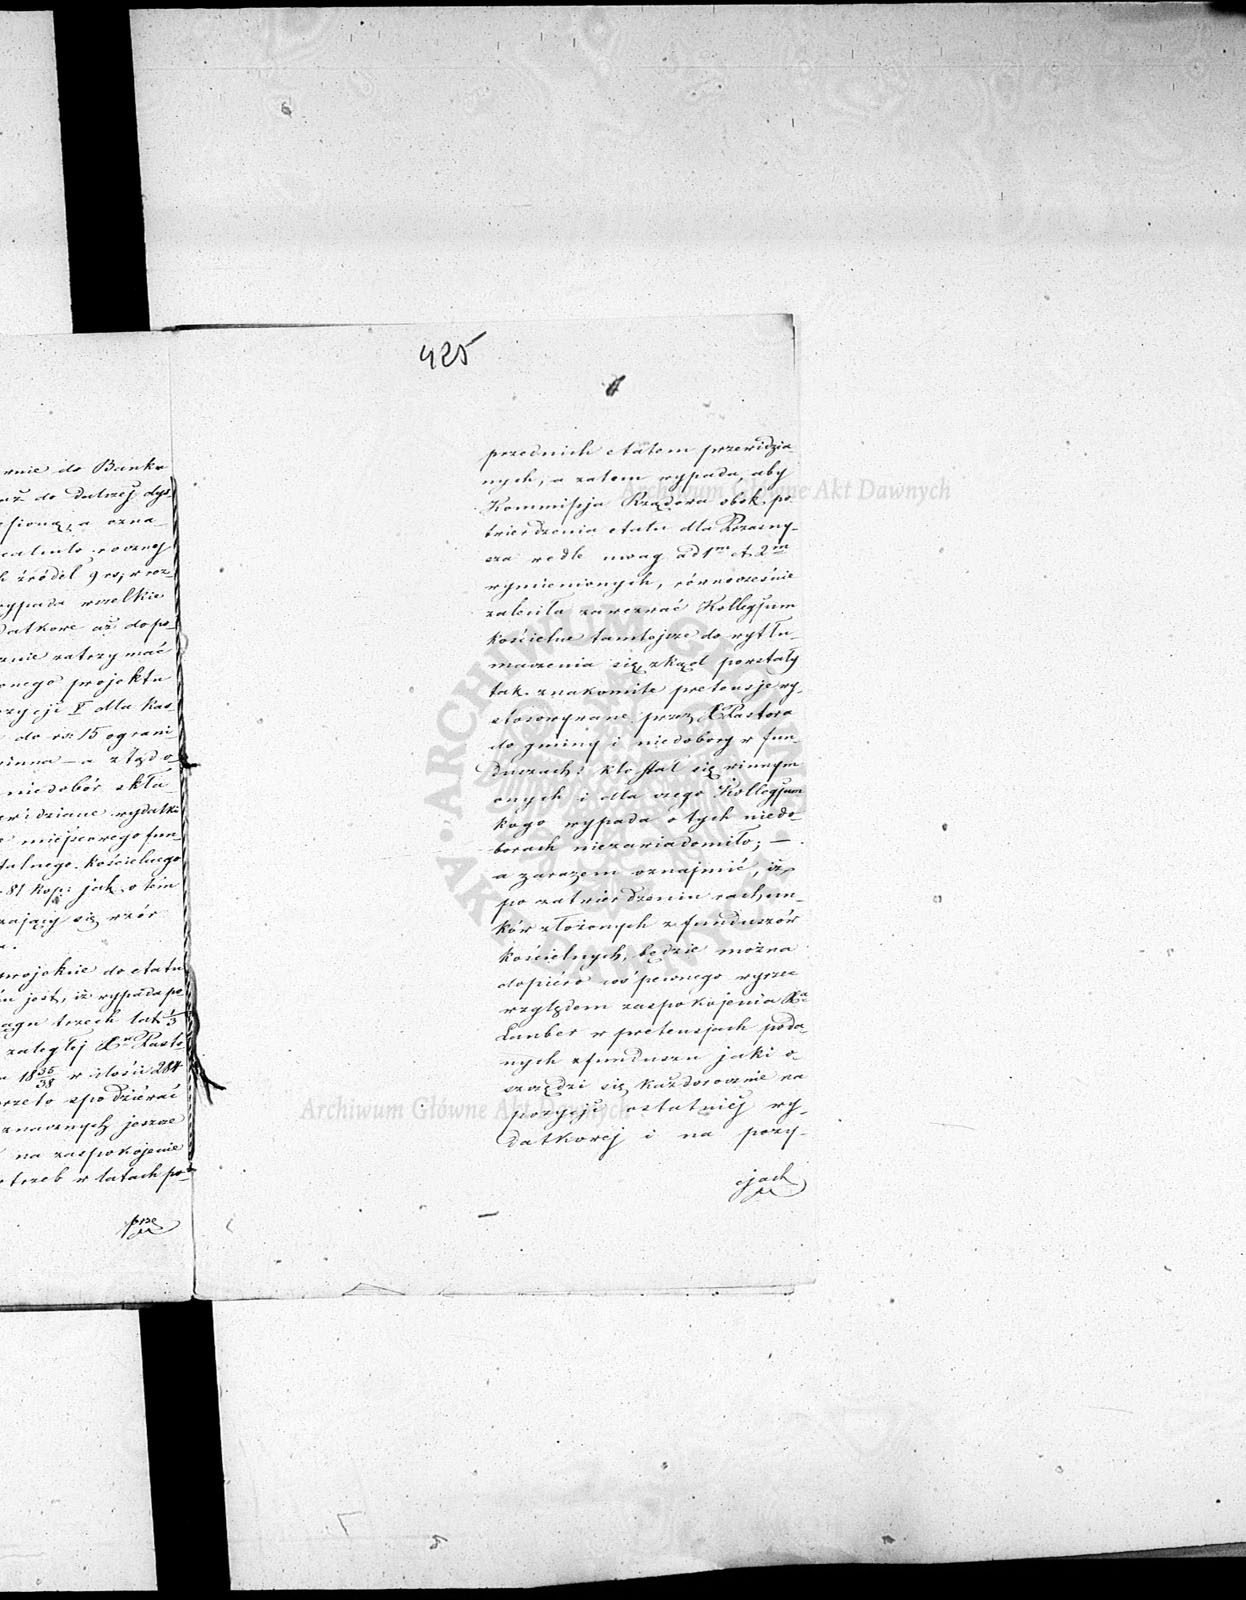 rnie do Banku
aż do dalszej dys
a ozna-
rocznej
źródeł 9 w roz-
wypada wszelkie
datkowe aż do po-
znie zatrzymać
onego projektu
zycji V dla kas-
do rs: 15 ograni
winna — a ztąd o
niedobór skła-
ewidziane wydatki
miejscowego fun-
talnego kościelnego
81 kop: jak o tem
zający się wzór
a.
do etatu
jest, iż wypada po
ągu trzech lat 1/3
zaległej Xa Pasto-
18 35/38 w ilości 284
przeto spodziewać
znacznych jeszcze
na zaspokojenie
otrzeb w latach po-
prze
425
przednich etatem przewidzia-
nych, a zatem wypada aby
Kommissja Rządowa obok po-
twierdzenia etatu dla Przasny-
sza wedle uwag ad 1m et 2m
wymienionych, równocześnie
zaleciła zawezwać Kollegjum
kościelne tamtejsze do wytłu-
maczenia się, zkąd powstały
tak znakomite pretensje wy-
stosowywane przez X Pastora
do gminy i niedobory w fun-
duszach: kto stał się winnym
onych i dla czego Kollegjum
kogo wypada o tych niedo-
borach niezawiadomiło; —
a zarazem oznajmić, iż
po zatwierdzeniu rachun-
ków złożonych z funduszów
kościelnych, będzie można
dopiéro coś pewnego wyrzec
względem zaspokojenia Xa
Lauber w pretensjach poda-
nych z funduszu jaki o-
szczędzi się każdorocznie na
pozycji ostatniej wy-
datkowej i na pozy-
cjach
ARCHIWUM GŁÓWNE
AKT DAWNYCH
Archiwum Główne Akt Dawnych
Archiwum Główne Akt Dawnych